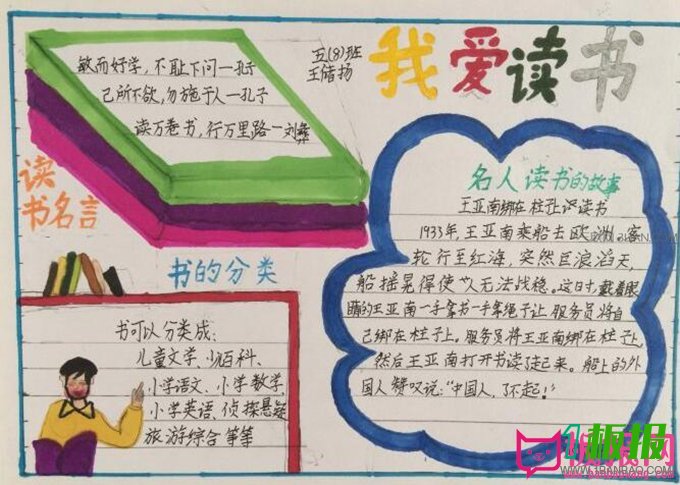 我爱读书
五(8)班
王储扬
敏而好学，不耻下问一孔子
己所不欲，勿施于人一孔子
读万卷书，行万里路一刘彝
读
书名言
书的分类
书可以分类成：
儿童文学、少儿百科、
小学语文、小学数学、
小学英语、侦探悬疑
旅游综合等等
名人读书的故事
王亚南绑在柱子上读书
1933年，王亚南乘船去欧洲。客
轮行至红海，突然巨浪滔天，
船摇晃得使人无法战稳。这时，戴着眼
睛的王亚南一手拿书一手拿绳子让服务员将自
己绑在柱子上。服务员将王亚南绑在柱子上，
然后王亚南打开书读了起来。船上的外
国人赞叹说："中国人，了不起！"
板报网
WWW.1BANBAO.COM